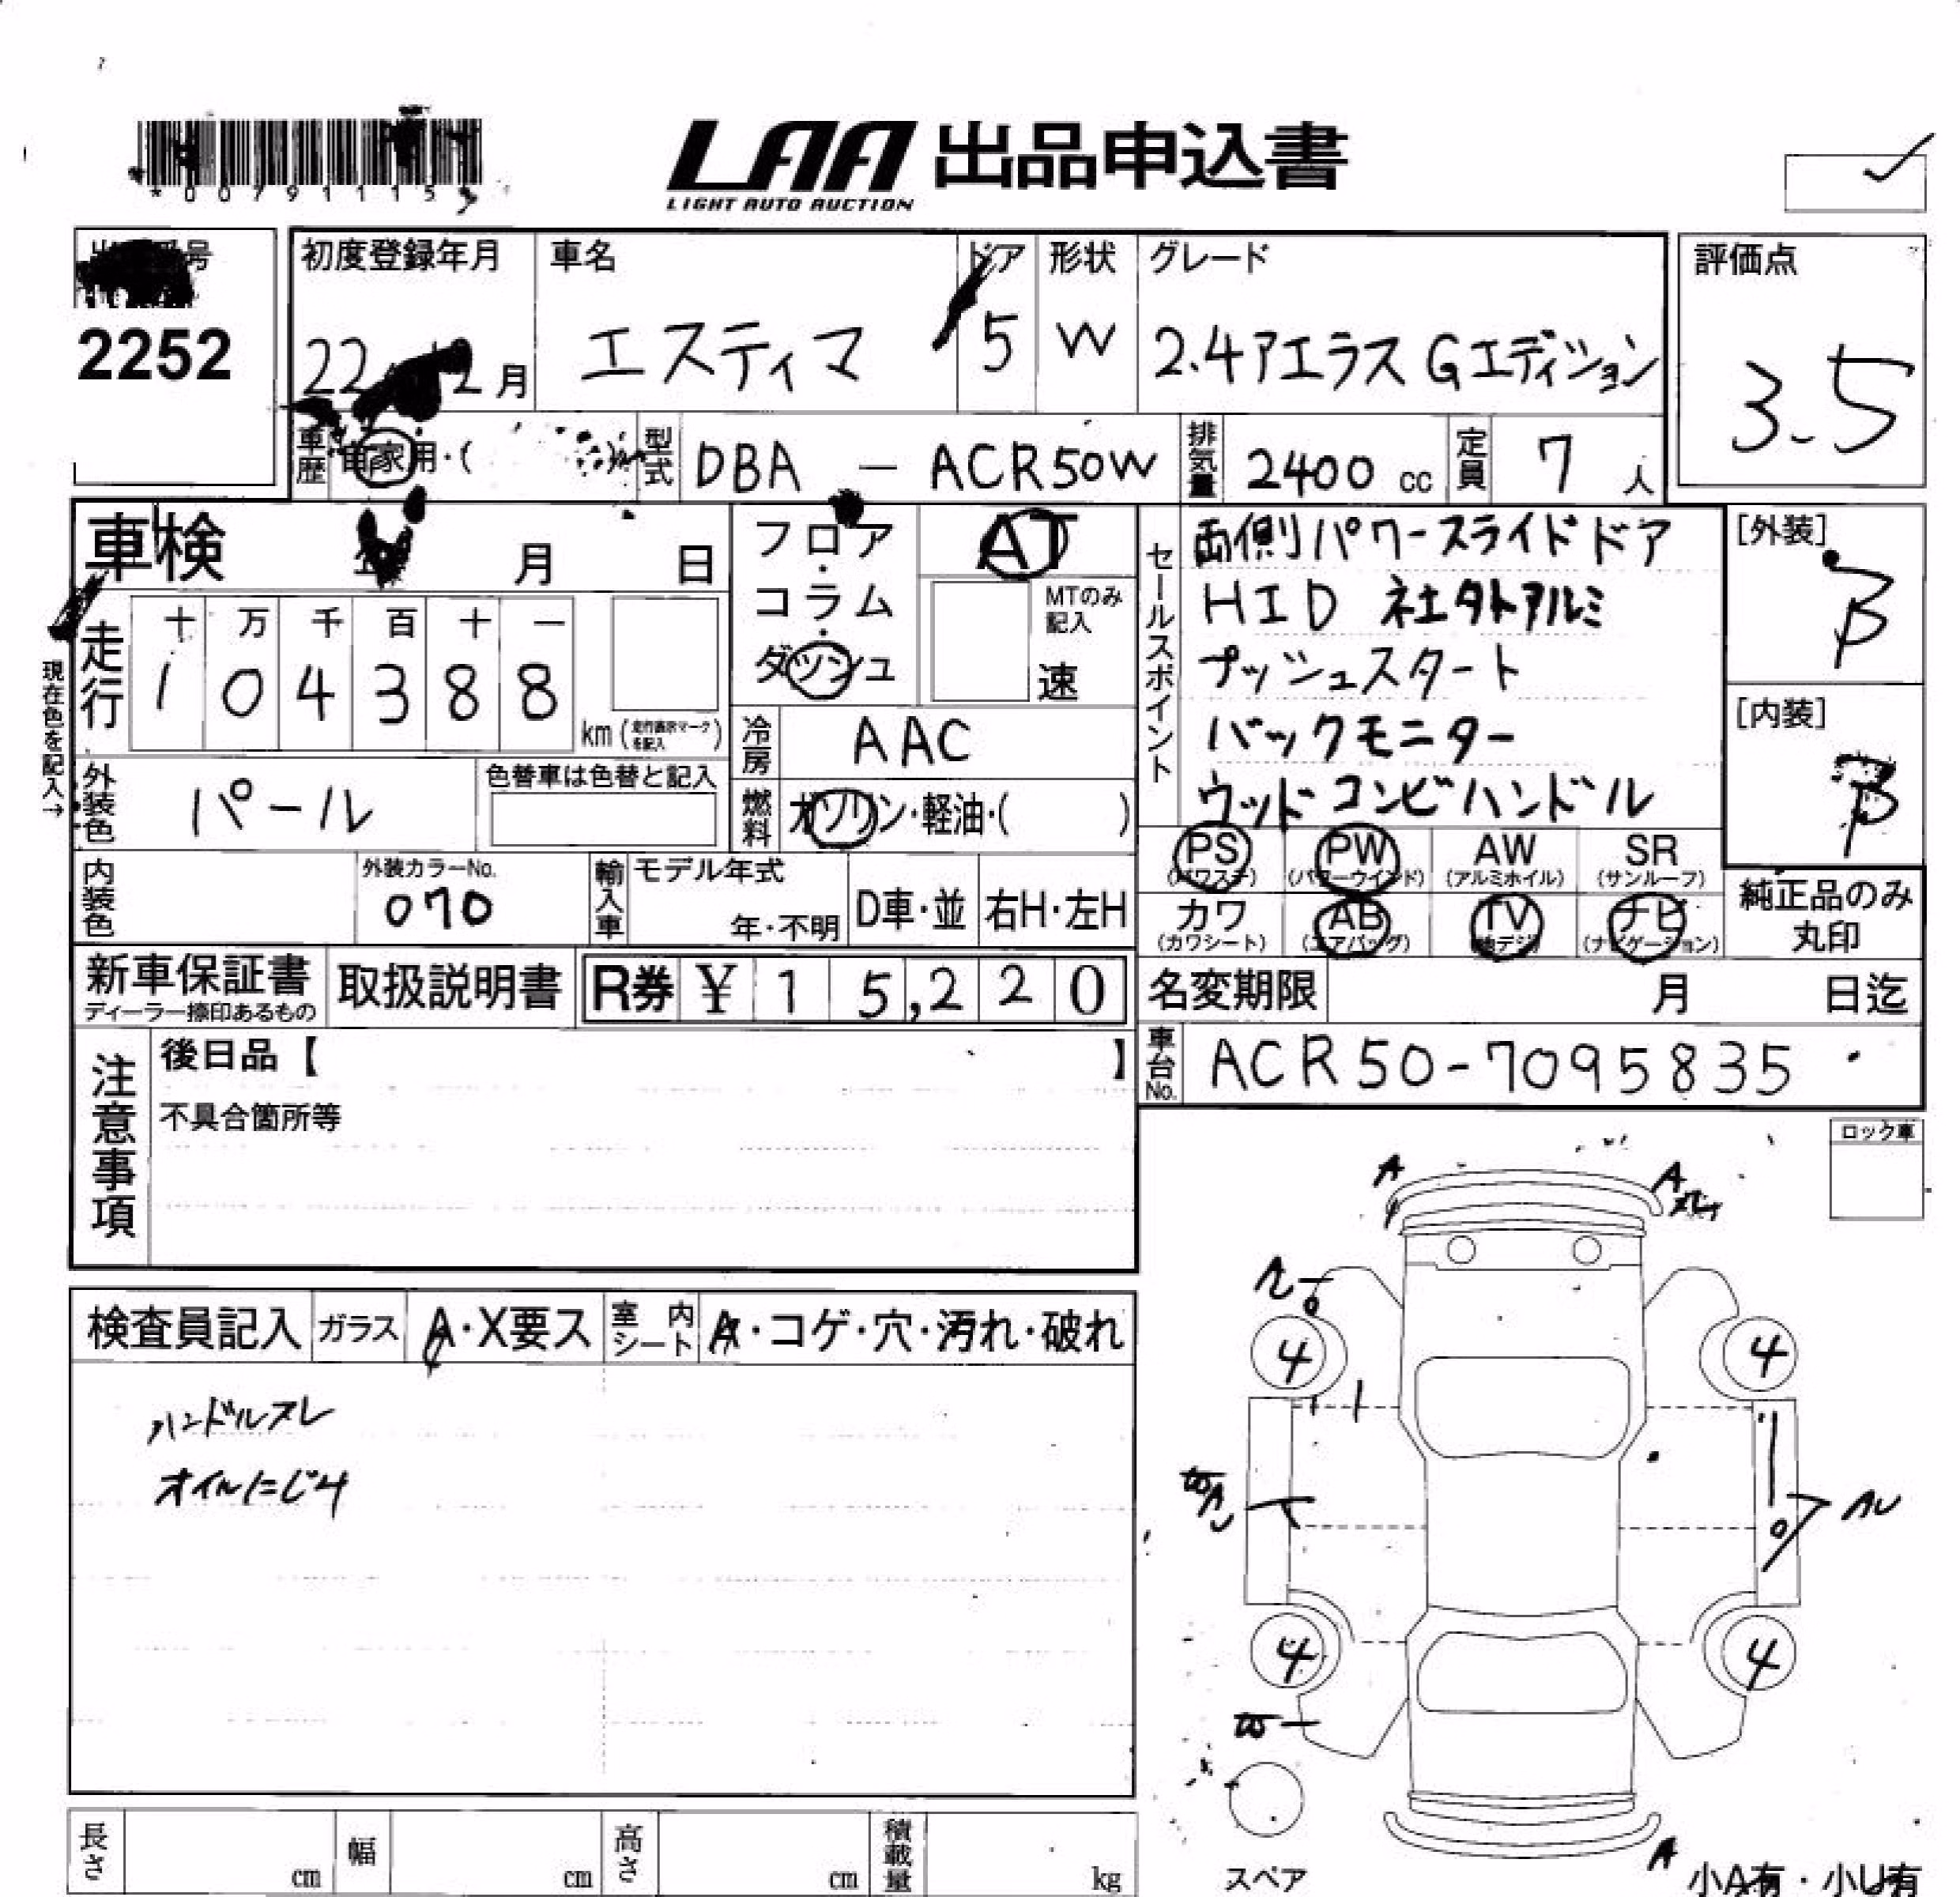 *00791115
LAA 出品申込書
LIGHT AUTO AUCTION
番号
2252
初度登録年月
22 12月
車名
エスティマ
ドア
5
形状
W
グレード
2.4アエラス Gエディション
評価点
3.5
車歴
自家用・( )
型式
DBA - ACR50W
排気量
2400 cc
定員
7 人
車検 年 月 日
フロア・コラム・ダッシュ
AT
MTのみ記入
速
セールスポイント
両側パワースライドドア
HID 社外アルミ
プッシュスタート
バックモニター
ウッドコンビハンドル
[外装]
B
[内装]
B
現在色を記入→
走行
十 万 千 百 十 一
1 0 4 3 8 8
km (走行表示マークを記入)
冷房
AAC
外装色
パール
色替車は色替と記入
燃料
ガソリン・軽油・( )
PS (パワステ)
PW (パワーウインド)
AW (アルミホイル)
SR (サンルーフ)
カワ (カワシート)
AB (エアバッグ)
TV (地デジ)
ナビ (ナビゲーション)
純正品のみ丸印
内装色
外装カラーNo.
070
輸入車
モデル年式
年・不明
D車・並
右H・左H
新車保証書
ディーラー捺印あるもの
取扱説明書
R券 ¥ 1 5,2 2 0
名変期限 月 日迄
車台No.
ACR50-7095835
注意事項
後日品【 】
不具合箇所等
ロック車
検査員記入
ガラス
A・X要ス
室内シート
A・コゲ・穴・汚れ・破れ
ハンドルスレ
オイルにじみ
A
A
4
4
4
4
A
スペア
小A有・小U有
長さ cm
幅 cm
高さ cm
積載量 kg